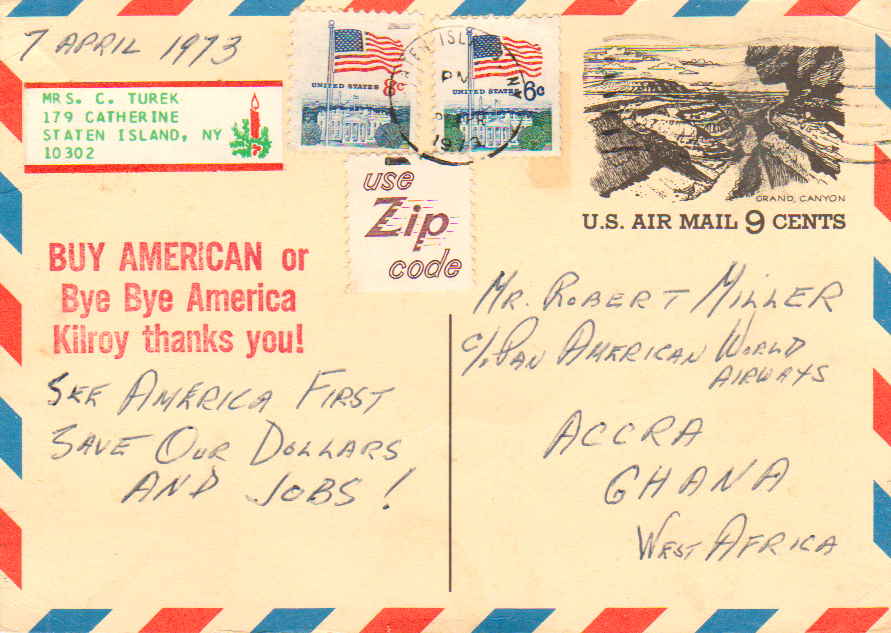 7 APRIL 1973
MRS. C. TUREK
179 CATHERINE
STATEN ISLAND, NY
10302
UNITED STATES 8c
UNITED STATES 6c
PM
1973
use
Zip
code
GRAND CANYON
U.S. AIR MAIL 9 CENTS
BUY AMERICAN or
Bye Bye America
Kilroy thanks you!
SEE AMERICA FIRST
SAVE OUR DOLLARS
AND JOBS!
MR. ROBERT MILLER
c/o PAN AMERICAN WORLD
AIRWAYS
ACCRA
GHANA
WEST AFRICA